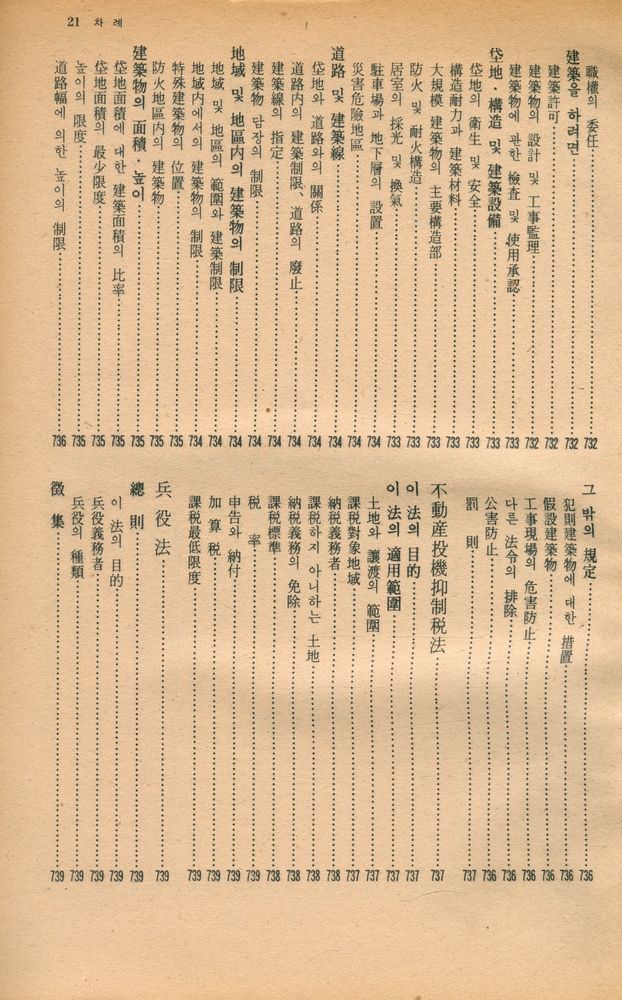 21 차 례
職權의 委任 732
建築을 하려면 732
建築許可 732
建築物의 設計 및 工事監理 732
建築物에 관한 檢査 및 使用承認 733
垈地·構造 및 建築設備 733
垈地의 衛生 및 安全 733
構造耐力과 建築材料 733
大規模 建築物의 主要構造部 733
防火 및 耐火構造 733
居室의 採光 및 換氣 733
駐車場과 地下層의 設置 734
災害危險地區 734
道路 및 建築線 734
垈地와 道路와의 關係 734
道路內의 建築制限、道路의 廢止 734
建築線의 指定 734
建築物 담장의 制限 734
地域 및 地區內의 建築物의 制限 734
地域 및 地區의 範圍와 建築制限 734
地域內에서의 建築物의 制限 734
特殊建築物의 位置 735
防火地區內의 建築物 735
建築物의 面積·높이 735
垈地面積에 대한 建築面積의 比率 735
垈地面積의 最少限度 735
높이의 限度 735
道路幅에 의한 높이의 制限 736
그 밖의 規定 736
犯則建築物에 대한 措置 736
假設建築物 736
工事現場의 危害防止 736
다른 法令의 排除 736
公害防止 736
罰 則 737
不動産投機抑制税法 737
이 法의 目的 737
이 法의 適用範圍 737
土地와 讓渡의 範圍 737
課税對象地域 737
納税義務者 738
課税하지 아니하는 土地 738
納税義務의 免除 738
課税標準 738
税 率 739
申告와 納付 739
加 算 税 739
課税最低限度 739
兵 役 法 739
總 則 739
이 法의 目的 739
兵役義務者 739
兵役의 種類 739
徵 集 739